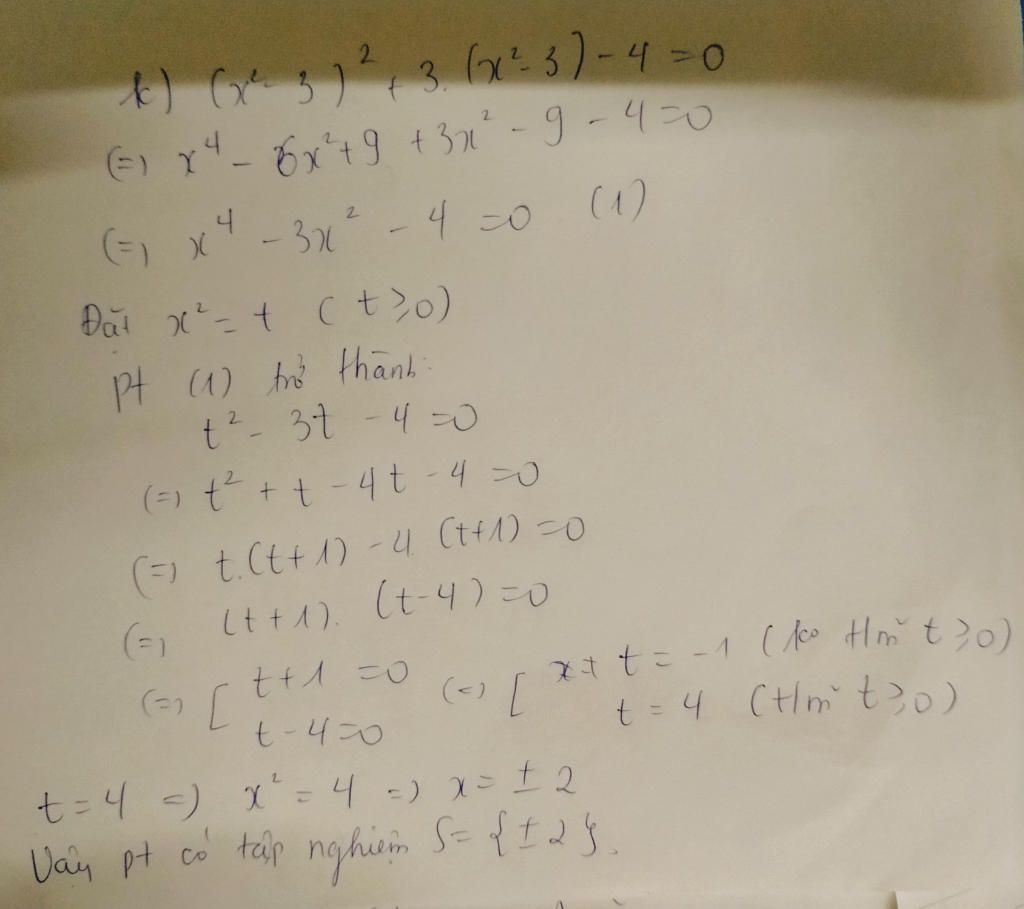 k) (x² - 3)² + 3. (x² - 3) - 4 = 0
(=) x⁴ - 6x² + 9 + 3x² - 9 - 4 = 0
(=) x⁴ - 3x² - 4 = 0 (1)
Đặt x² = t ( t ≥ 0)
pt (1) trở thành:
t² - 3t - 4 = 0
(=) t² + t - 4t - 4 = 0
(=) t.(t+1) - 4.(t+1) = 0
(=) (t+1). (t-4) = 0
(=) [ t+1 = 0 (=) [ t = -1 (ko t/m t ≥ 0)
t - 4 = 0 t = 4 (t/m t ≥ 0)
t = 4 =) x² = 4 =) x = ± 2
Vậy pt có tập nghiệm S = {± 2}.